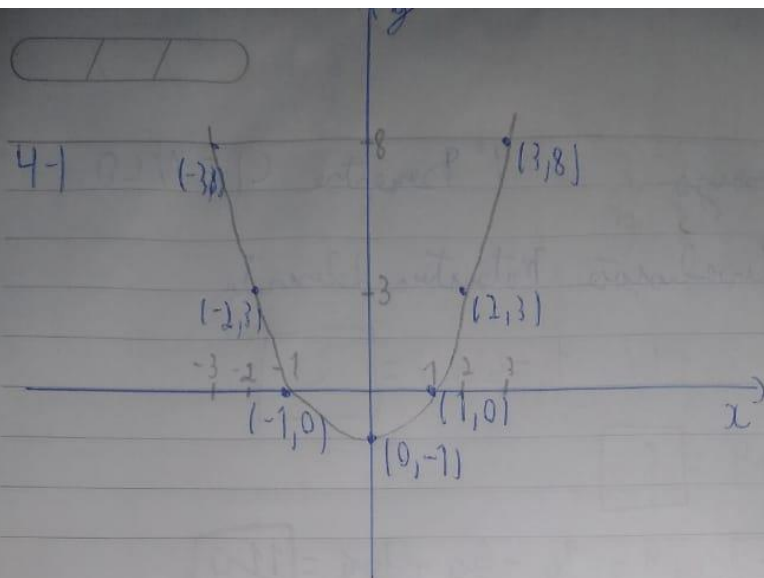 y
8
4-1
(3,8)
3
(-2,3)
(2,3)
-3 -2 -1 1 2 3
(-1,0)
(1,0)
x
(0,-1)